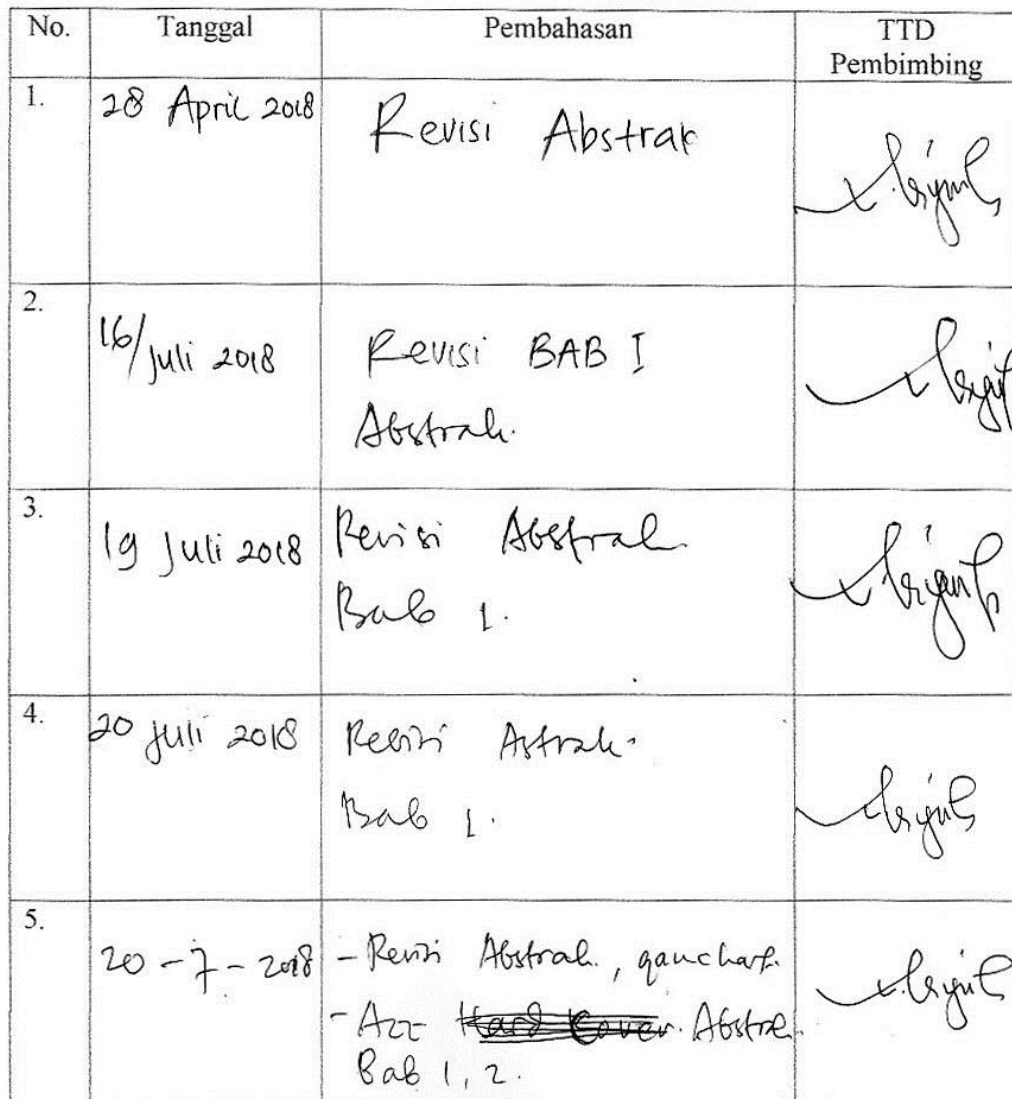 No. Tanggal Pembahasan TTD
Pembimbing
1. 28 April 2018 Revisi Abstrak
2. 16/Juli 2018 Revisi BAB I
Abstrak.
3. 19 Juli 2018 Revisi Abstrak
Bab 1.
4. 20 Juli 2018 Revisi Astrak.
Bab 1.
5. 20-7-2018 - Revisi Abstrak,
- Acc Hard Cover. Abstrak
Bab 1, 2.